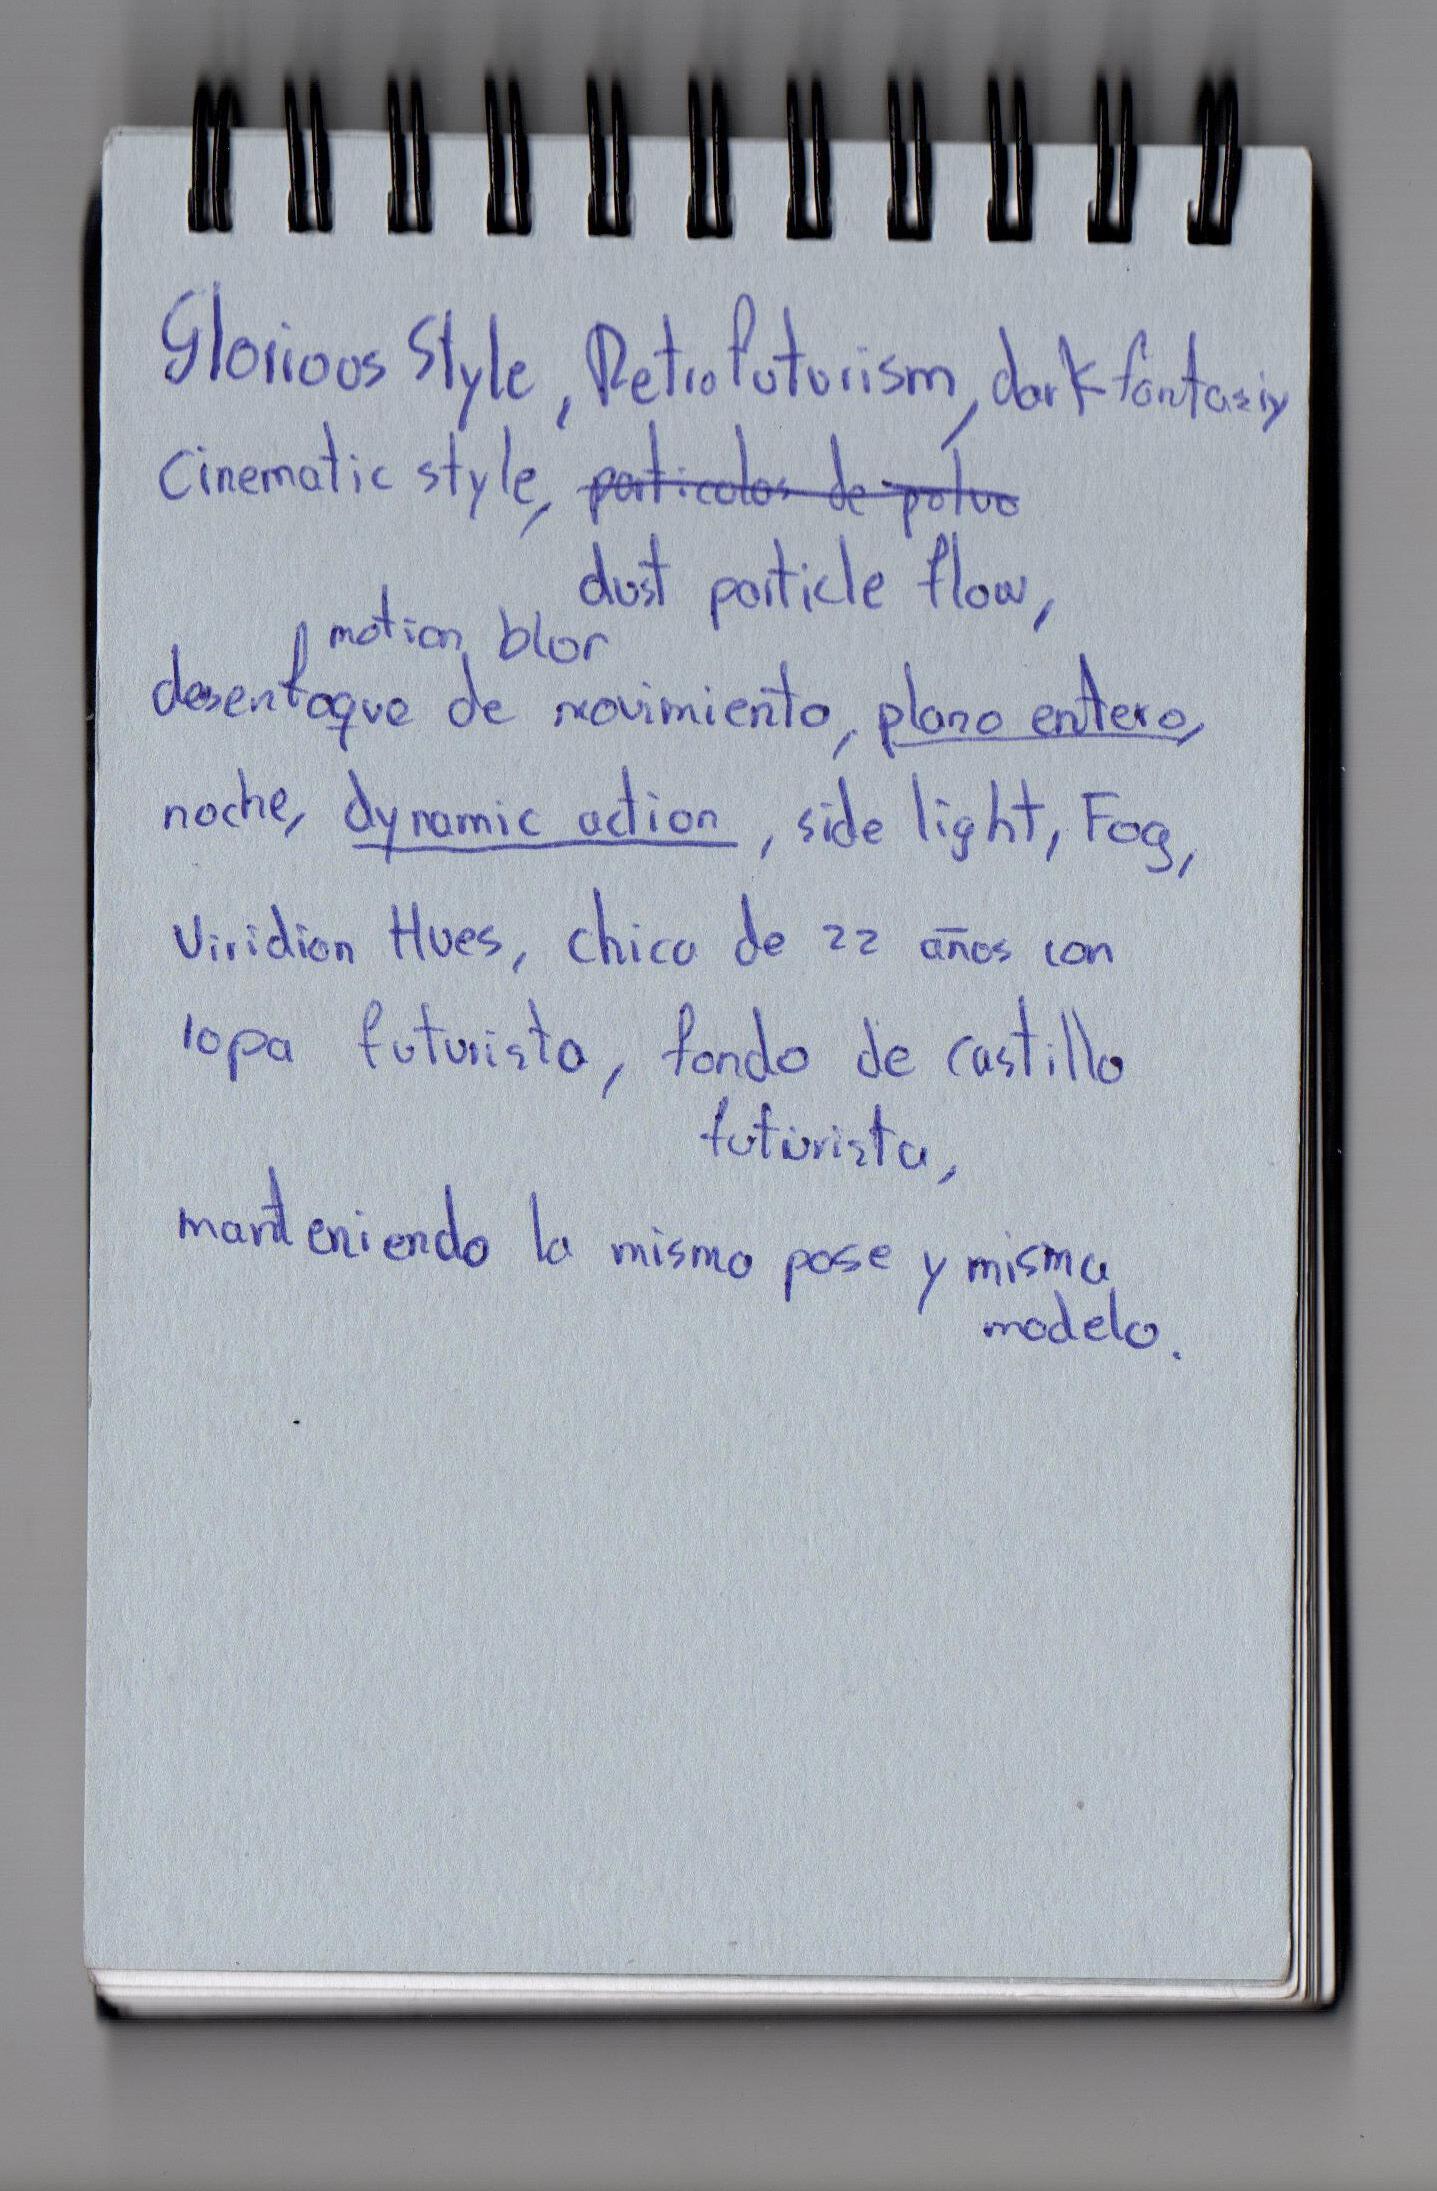 Glorious Style, Retrofuturism, dark fantasiy
Cinematic style, particulas de polvo
dust particle flow,
motion blur
desenfoque de movimiento, plano entero,
noche, dynamic action, side light, Fog,
Viridian Hues, chica de 22 años con
ropa futurista, fondo de castillo
futurista,
manteniendo la misma pose y misma
modelo.